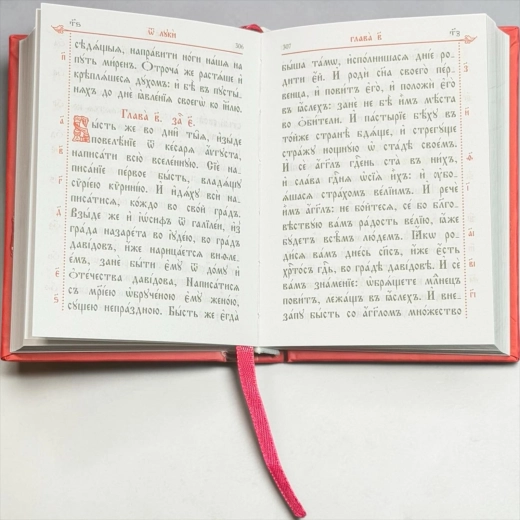 т҃ѕ
ѿ лꙋкѝ
306
сѣдѧ́щыѧ, напра́вити но́ги на́шѧ на
пꙋ́ть ми́ренъ. Ѻ҆троча́ же растѧ́ше и҆
крѣплѧ́шесѧ дꙋ́хомъ: и҆ бѣ̀ въ пꙋсты́-
нѧхъ до днѐ ꙗ҆вле́нїѧ своегѡ̀ ко і҆и҃лю.
Глава̀ в҃. За҄ є҃.
Бы́сть же во дни̑ ты̑ѧ, и҆зы́де
повелѣ́нїе ѿ ке́сарѧ а҆́ѵгꙋста,
написа́ти всю̀ вселе́ннꙋю. Сїѐ на-
писа́нїе пе́рвое бы́сть, владѧ́щꙋ
сѷрі́ею кѷри́нїю. И҆ и҆дѧ́хꙋ всѝ на-
писа́тисѧ, ко́ждо во сво́й гра́дъ.
Взы́де же и҆ і҆ѡ́сифъ ѿ галїле́и, и҆з̾
гра́да назаре́та во і҆ꙋде́ю, во гра́дъ
даві́довъ, и҆́же нарица́етсѧ виѳле-
е́мъ, занѐ бы́ти є҆мꙋ̀ ѿ до́мꙋ и҆
ѻ҆те́чества даві́дова, Написа́тисѧ
съ мр҃і́ею ѡ҆брꙋче́ною є҆мꙋ̀ жено́ю,
сꙋ́щею непра́здною. Бы́сть же є҆гда̀
307
глава̀ в҃
т҃з
бы́ша та́мѡ, и҆спо́лнишасѧ дні́е ро-
ди́ти є҆́й. И҆ родѝ сн҃а своего̀ пе́р-
венца, и҆ пови́тъ є҆го̀, и҆ положѝ є҆го̀
въ ꙗ҆́слехъ: занѐ не бѣ̀ и҆̀мъ мѣ́ста
во ѻ҆би́тели. И҆ па́стырїе бѣ́хꙋ въ
то́йже странѣ̀ бдѧ́ще, и҆ стрегꙋ́ще
стра́жꙋ нощнꙋ́ю ѡ҆ ста́дѣ свое́мъ.
И҆ сѐ а҆́гг҃лъ гд҇ень ста̀ въ ни́хъ,
и҆ сла́ва гд҇нѧ ѡ҆сїѧ̀ и҆̀хъ: и҆ ᲂу҆боѧ́-
шасѧ стра́хомъ ве́лїимъ. И҆ речѐ
и҆̀мъ а҆́гг҃лъ: не бо́йтесѧ, се́ бо благо-
вѣствꙋ́ю ва́мъ ра́дость ве́лїю, ꙗ҆́же
бꙋ́детъ всѣ̑мъ лю́демъ. Ꙗ҆́кѡ ро-
ди́сѧ ва́мъ дне́сь сп҃съ, и҆́же є҆́сть
хрⷭ҇то́съ гд҇ь, во гра́дѣ даві́довѣ. И҆ сѐ
ва́мъ зна́менїе: ѡ҆брѧ́щете мл҃нецъ
пови́тъ, лежа́щъ въ ꙗ҆́слехъ. И҆ вне-
за́пꙋ бы́сть со а҆́гг҃ломъ мно́жество